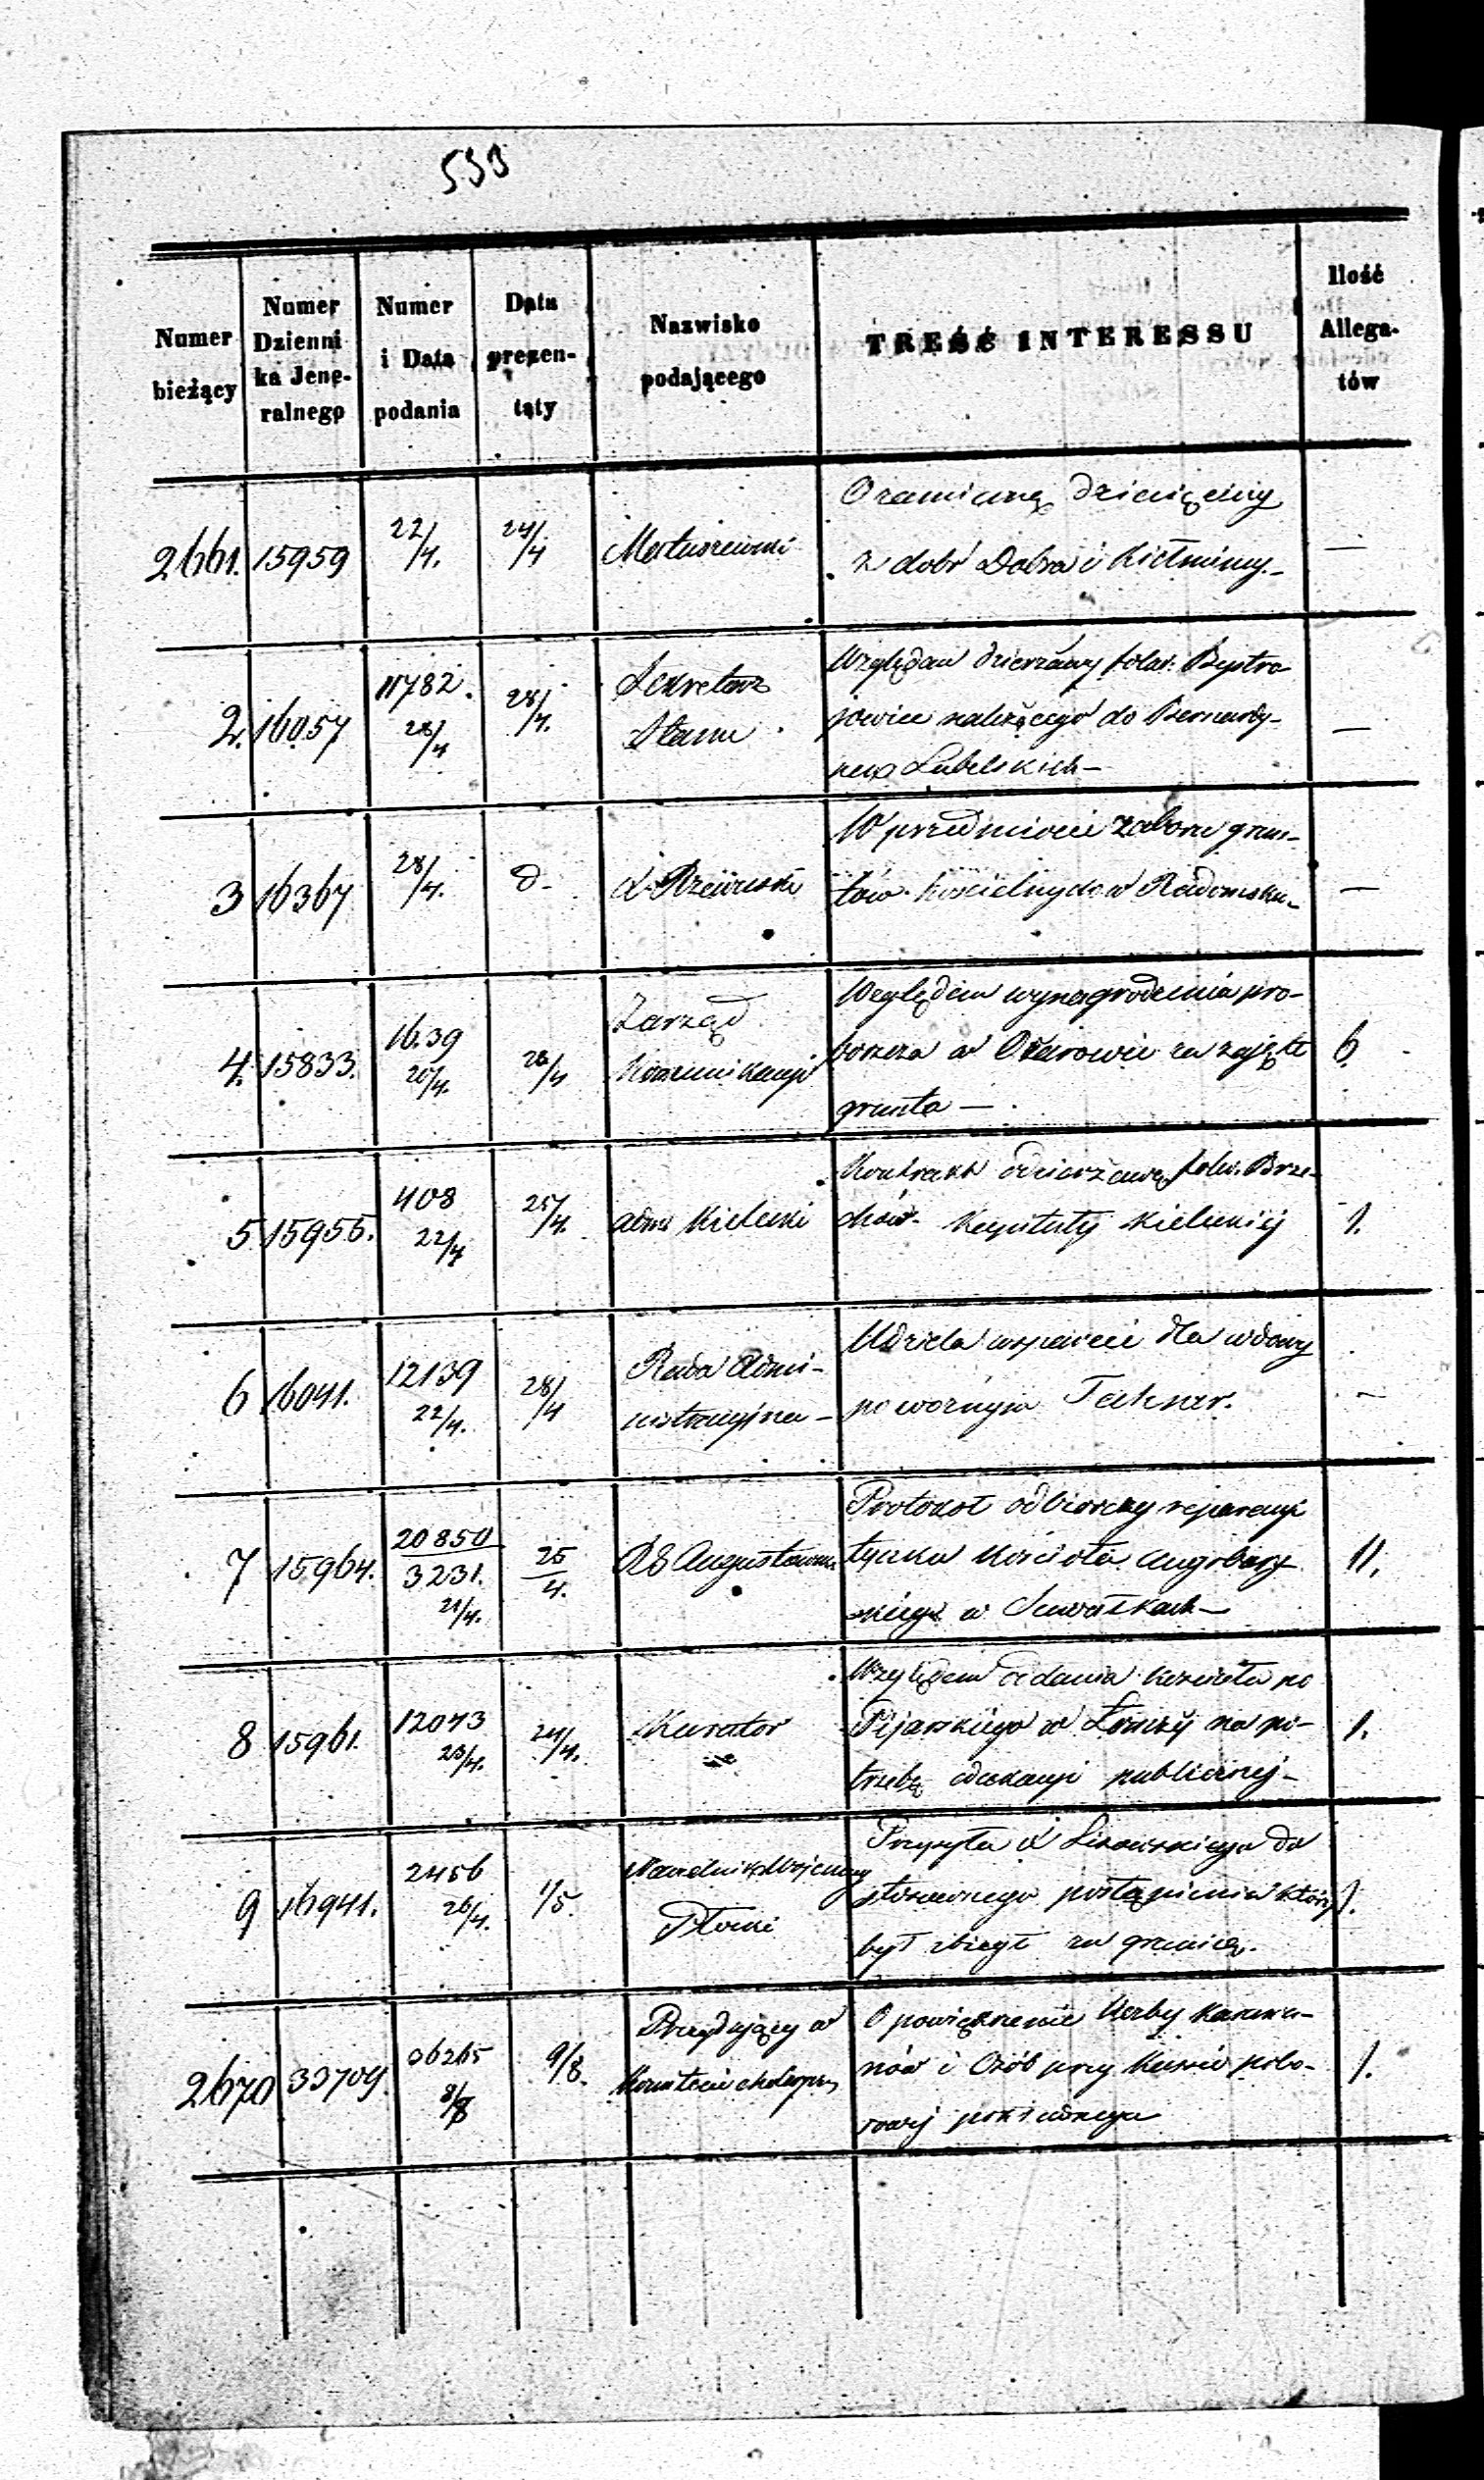 533
Numer bieżący
Numer Dzienni ka Jene- ralnego
Numer i Data podania
Data prezen- taty
Nazwisko podającego
TREŚĆ INTERESSU
Ilość Allega- tów
2661. 15959 22/4. 24/4 Matuszewski
O zamianę dziesięciny
z dobr Dobra i Kiełminy. —
2. 16057 11782. 28/4 28/4. Sekretarz Stanu
Względem dzierżawy folw. Bystro-
jowice należącego do Bernardy-
nów Lubelskich — —
3 16367 28/4. d- X
W przedmiocie zaboru grun-
tów kościelnych w Radomsku. —
4. 15833. 1639 20/4. 28/4 Zarząd Kommunikacyi
Względem wynagrodzenia pro-
boszcza w Ożarowie za zajęte 6
grunta —
5 15955. 408 22/4 25/4. adm Kielecki
Kontrakt o dzierżawę folw. Brze-
chów Kapituły Kieleckiej 1.
6 16041. 12139 22/4. 28/4 Rada Admi- nistracyjna —
Udziela wsparcie dla wdowy
po woźnym —
7 15964. 20850 3231. 21/4. 25/4. RG Augustowski
Protokół odbiorczy reparacyi
tyczki Kościoła Augsburg 11.
skiego w Suwałkach —
8 15961. 12043 23/4. 24/4. Kurator
Względem oddania kościoła po
Pijarskiego w Łomży na po- 1.
trzebę edukacyi publicznej —
9 16941. 2456 26/4. 1/5. Naczelnik Wojenny Płocki
Przysyła X Lisowskiego do
stosownego postąpienia który 1.
był zbiegł za granicę.
2670 33709. 36265 8/8 9/8. Prezydujący w Komitecie
O powiększenie liczby
i Osób przy 1.